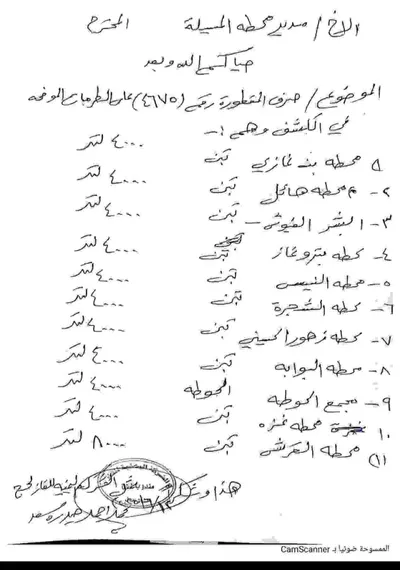 الاخ / مدير محطه المسيلة المحترم
حياكم الله وبعد
الموضوع / صرف المقطورة رقم (٤٦٧٥) على الطرمبات الموضحه
في الكشف وهم :-
١ محطه بن غازي تبن ٤٠٠٠ لتر
٢- محطه هائل تبن ٤٠٠٠ لتر
٣- البشر الفيوشي - تبن ٤٠٠٠ لتر
٤- محطه بتروغاز تبن ٤٠٠٠ لتر
٥- محطه النيس تبن ٤٠٠٠ لتر
٦- محطه الشجرة تبن ٤٠٠٠ لتر
٧- محطه زهور الحسيني تبن ٤٠٠٠ لتر
٨- محطه البوابه تبن ٤٠٠٠ لتر
٩- مجمع الحوطه الحوطه ٤٠٠٠ لتر
١٠ محطه غزه تبن ٤٠٠٠ لتر
١١ محطه القرشي تبن ٨٠٠٠ لتر
هذا و
محمد احمد حيدره
الممسوحة ضوئيا بـ CamScanner